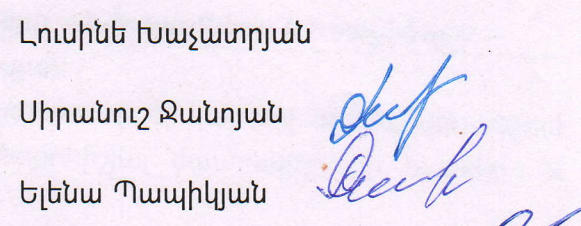 Լուսինե Խաչատրյան
Սիրանուշ Ջանոյան
Ելենա Պապիկյան